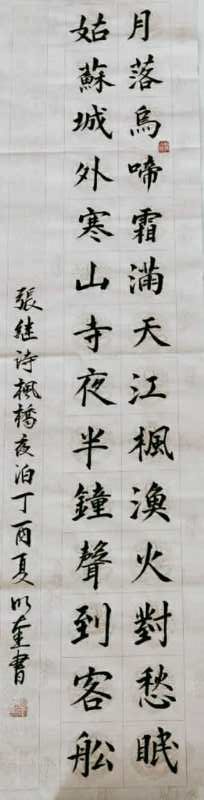 月落烏啼霜滿天江楓漁火對愁眠
姑蘇城外寒山寺夜半鐘聲到客船
張继诗楓橋夜泊丁酉夏以奎書